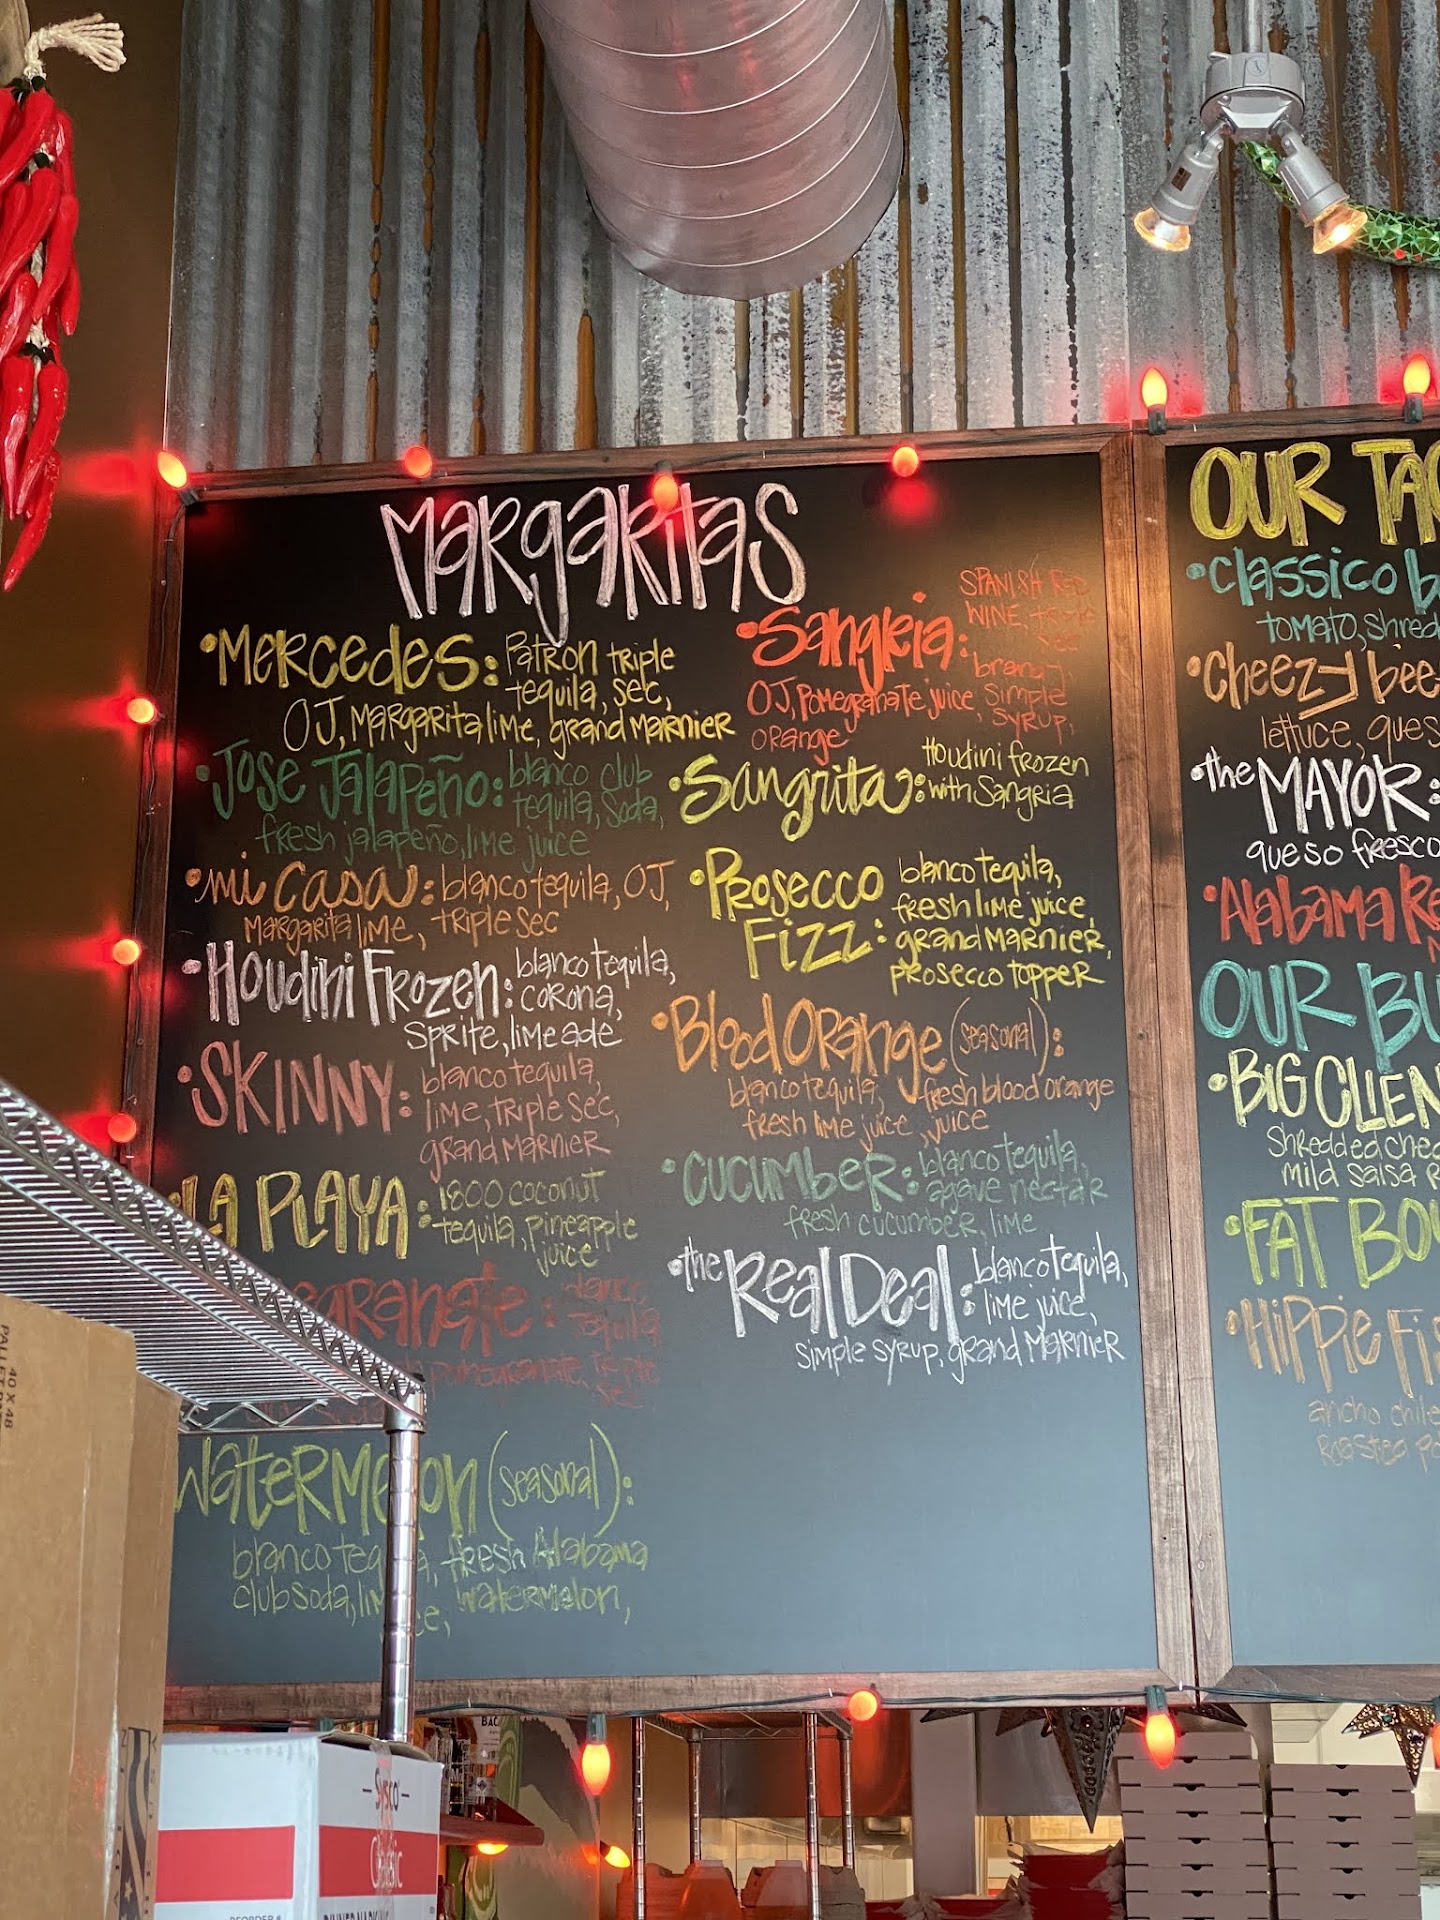 MARGARITAS
•MERCEDES: PATRON TRIPLE
tequila, sec,
OJ, MARGARITA lime, grand MARNIER
•JOSE JALAPEÑO: blanco club
tequila, Soda,
fresh jalapeño, lime juice
•mi casa: blanco tequila, OJ,
MARGARITA lIME, TRIPLE SEC
•Houdini Frozen: blanco tequila,
CORONA,
SPRITE, limeade
•SKINNY: blanco tequila,
lime, TRIPLE SEC,
grand MARNIER
LA PLAYA: 1800 coconut
tequila, pineapple
juice
egranate: blanco
tequila
pomegranate, triple
sec
WATERMELON (seasonal):
blanco tequila, fresh Alabama
club soda, lime juice, watermelon,
•Sangria: SPANISH RED
WINE, triple
sec
brandy,
OJ, POMEGRANATE juice, simple
syrup,
ORANGE
•Sangrita: Houdini frozen
with Sangria
•PROSECCO blanco tequila,
FIZZ: fresh lime juice,
grand MARNIER,
PROSECCO TOPPER
•Blood ORANGE (seasonal):
blanco tequila, fresh blood orange
fresh lime juice, juice
•CUCUMBER: blanco tequila,
agave nectar
fresh cucumber, lime
•the Real Deal: blanco tequila,
lime juice,
simple syrup, grand MARNIER
OUR TAC
•classico b
tomato, shred
•cheezy bee
lettuce, ques
•the MAYOR:
queso fresco
•Alabama Re
OUR BU
•BIG CLIEN
Shredded ched
mild salsa R
•FAT BO
•HIPPIE FIS
ancho chile
Roasted po
40 X 48
PALLET PAT
Sysco
Classic
REORDER #
DINNER NAPKIN
BAC